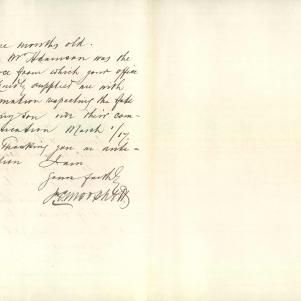 months old.
Mr Adamson was the
from which your office
supplied me with
mation respecting the fate
my son over their com-
ication March 1/17.
Thanking you in antic-
tion I am
Yours faithfully